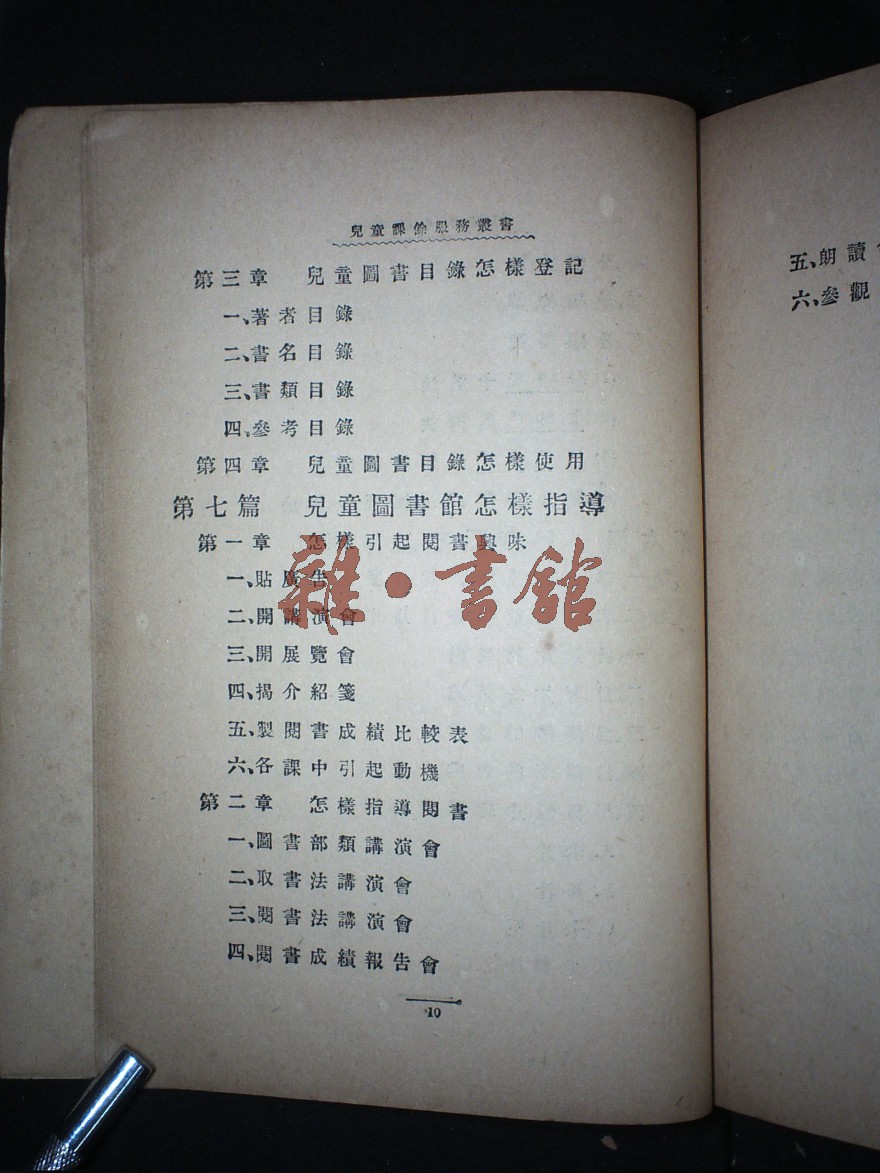 兒童課餘服務叢書
第三章　兒童圖書目錄怎樣登記
一、著者目錄
二、書名目錄
三、書類目錄
四、參考目錄
第四章　兒童圖書目錄怎樣使用
第七篇　兒童圖書館怎樣指導
第一章　怎樣引起閱書興味
一、貼廣告
二、開講演會
三、開展覽會
四、揭介紹箋
五、製閱書成績比較表
六、各課中引起動機
第二章　怎樣指導閱書
一、圖書部類講演會
二、取書法講演會
三、閱書法講演會
四、閱書成績報告會
10
五、朗讀
六、參觀
雜·書館